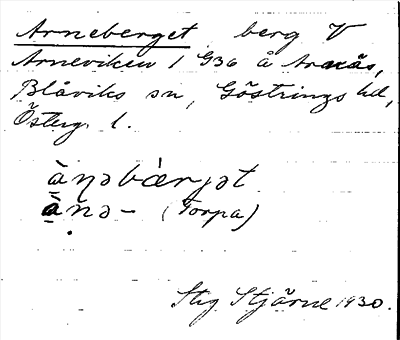 Arneberget berg V
Arneviken 1 G36 å Arnäs,
Blåviks sn, Göstrings hd,
Österg. l.
àṇəbærjət
ànə- (Torpa)
Stig Stjärne 1930.